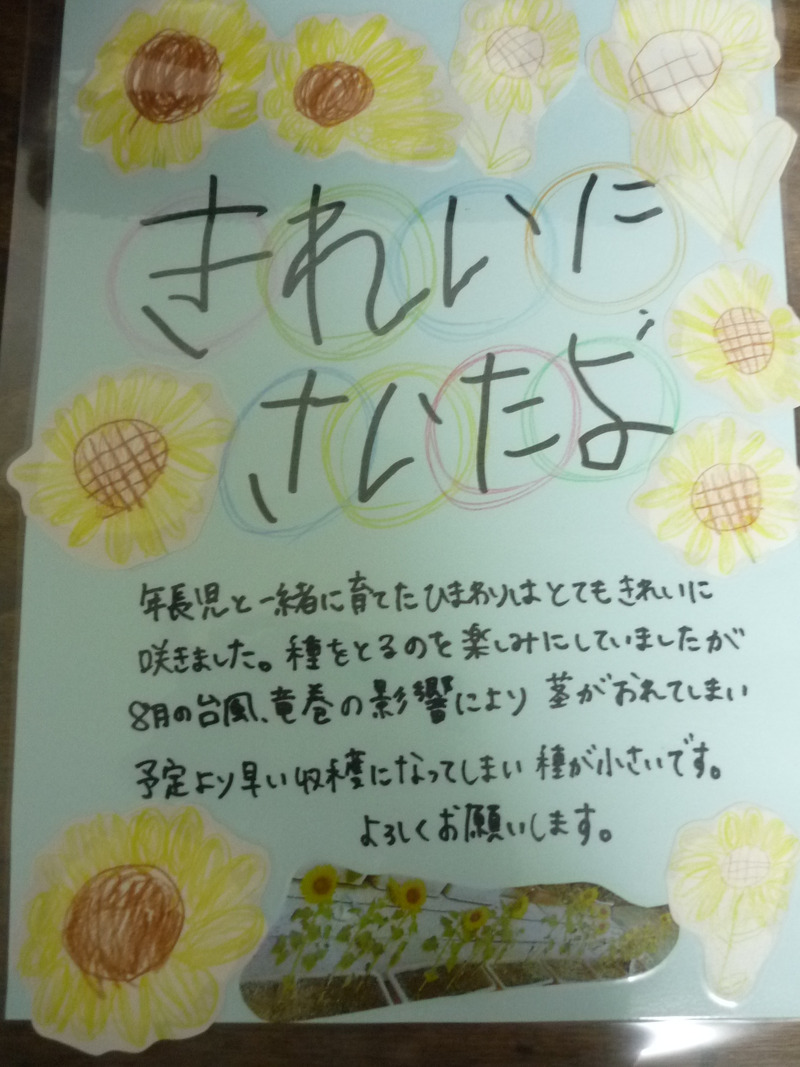 きれいに
さいたよ
年長児と一緒に育てたひまわりはとてもきれいに
咲きました。種をとるのを楽しみにしていましたが
8月の台風、竜巻の影響により 茎がおれてしまい
予定より早い収穫になってしまい 種が小さいです。
よろしくお願いします。